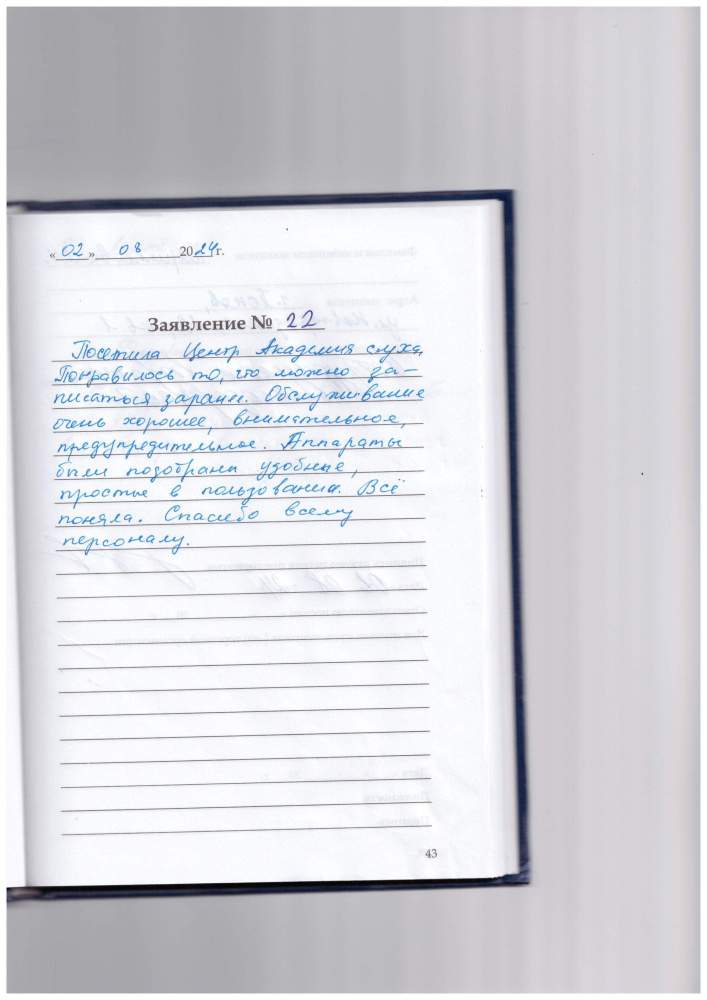 «02» 08 2024г.
Заявление № 22
Посетила Центр Академия слуха.
Понравилось то, что можно за-
писаться заранее. Обслуживание
очень хорошее, внимательное,
предупредительное. Аппараты
были подобраны удобные,
простые в пользовании. Всё
поняла. Спасибо всему
персоналу.
43